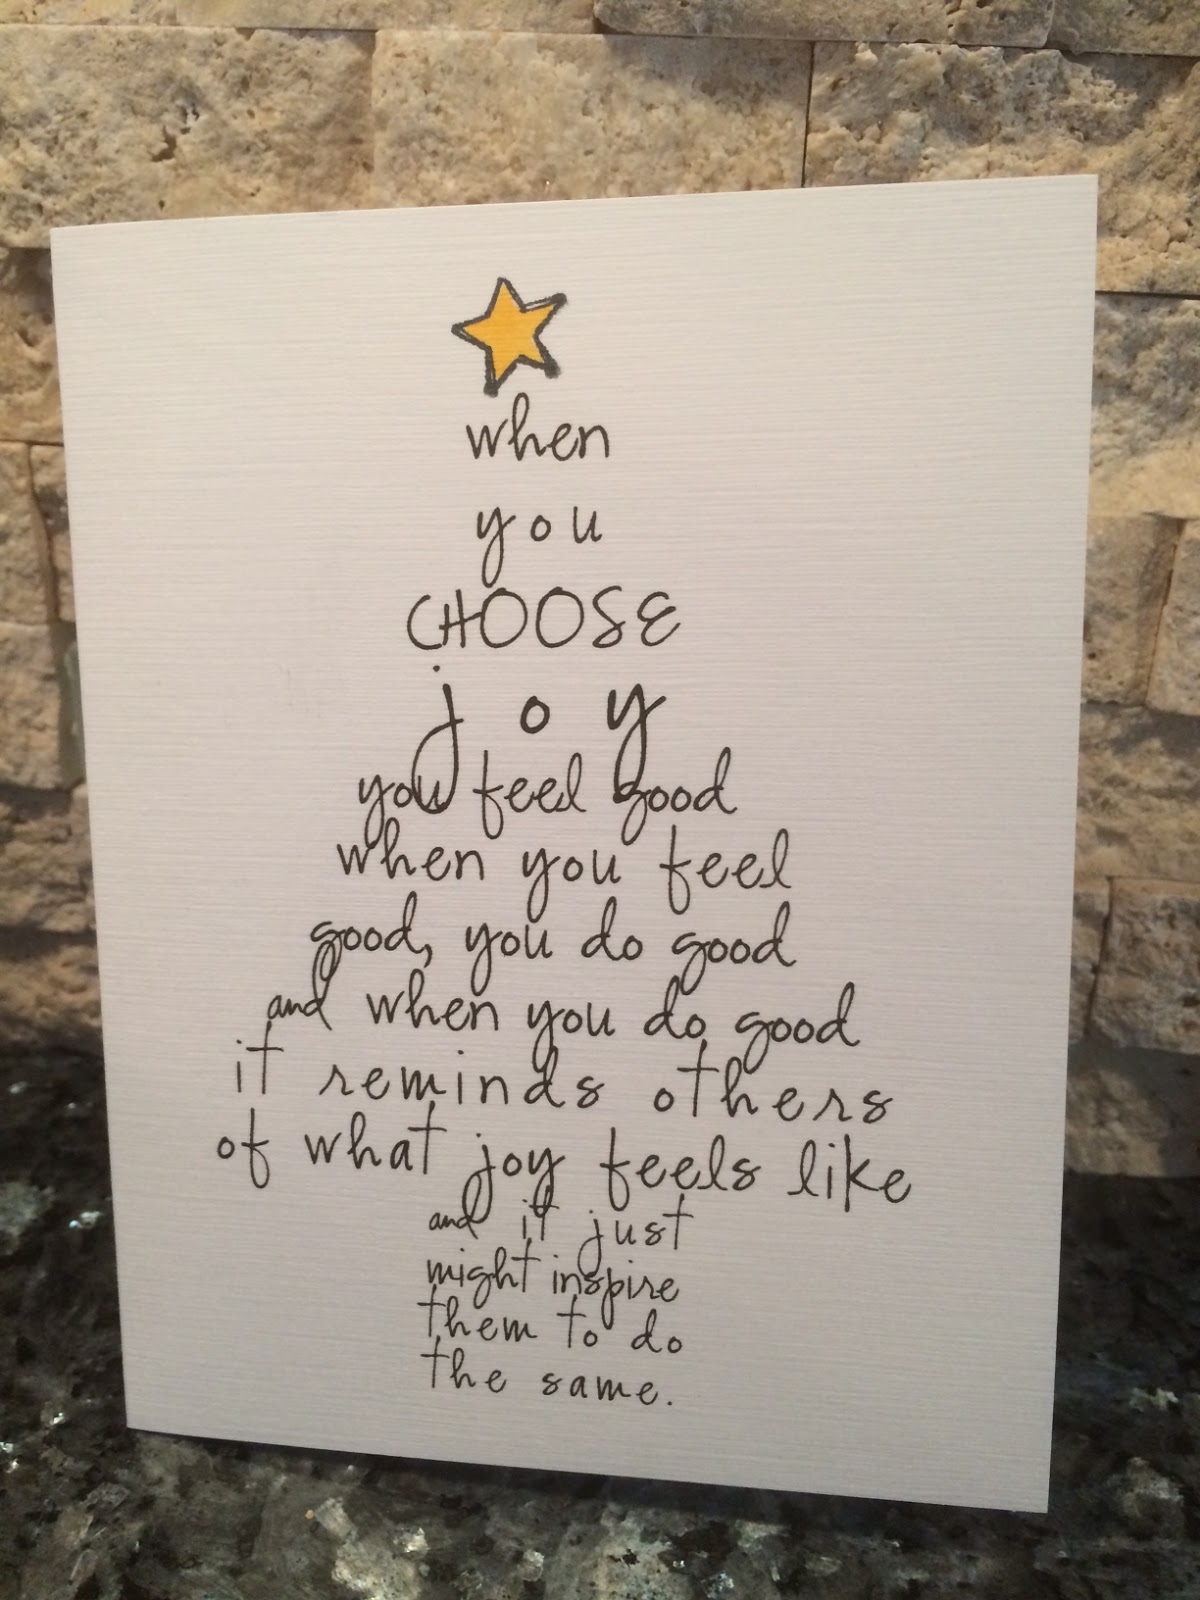 when
you
CHOOSE
joy
you feel good
when you feel
good, you do good
and when you do good
it reminds others
of what joy feels like
and it just
might inspire
them to do
the same.